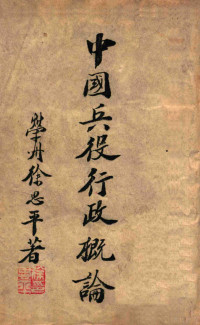 中國兵役行政概論
學舟徐思平著